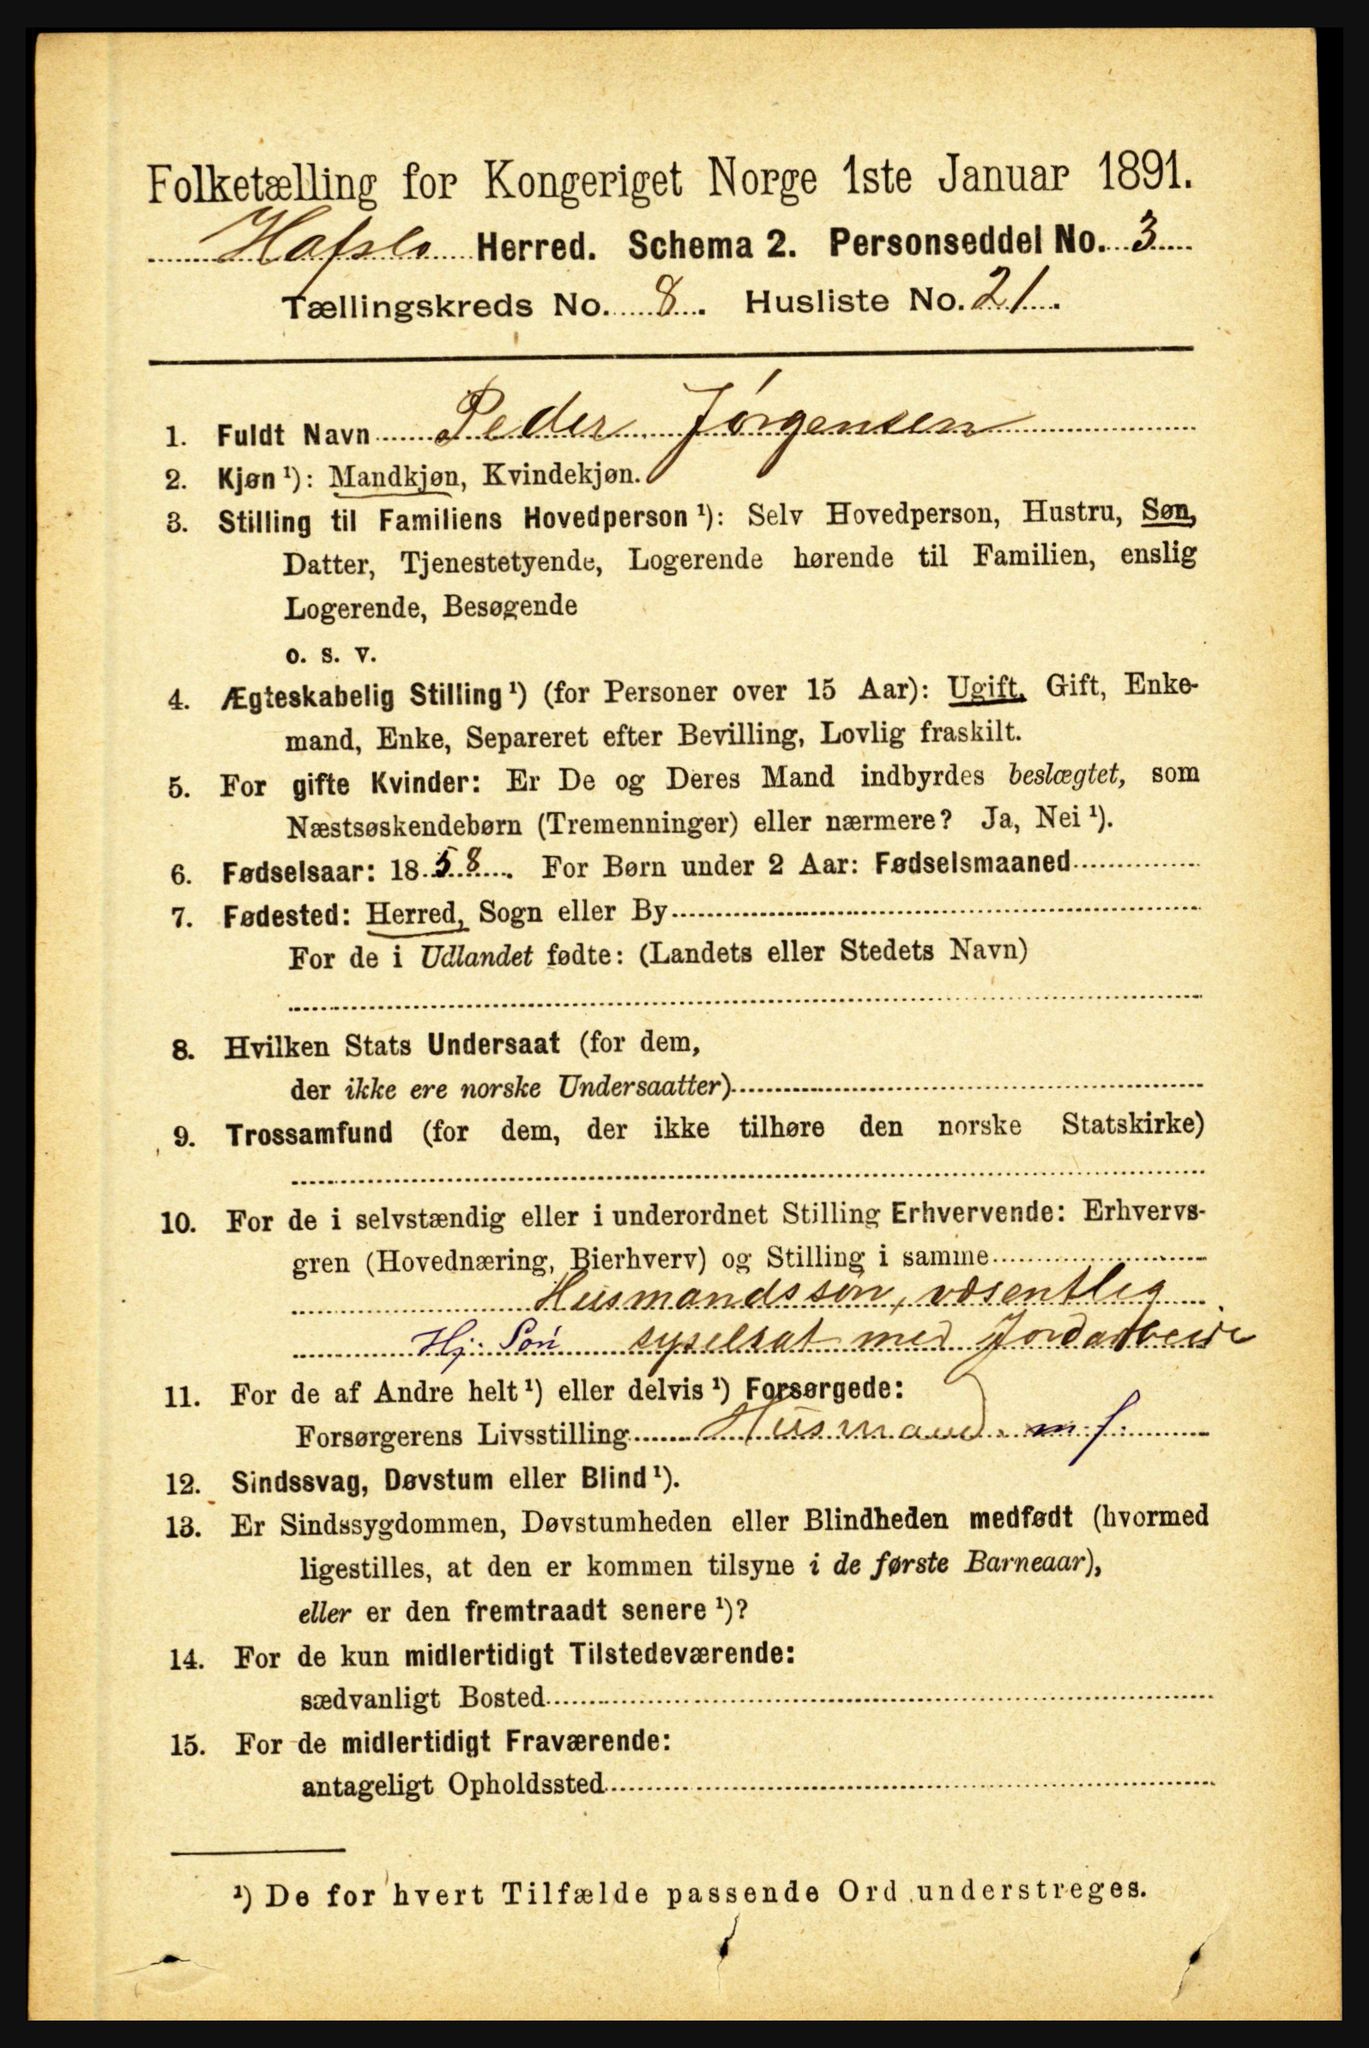 Folketælling for Kongeriget Norge 1ste Januar 1891.
Hafslo Herred. Schema 2. Personseddel No. 3
Tællingskreds No. 8. Husliste No. 21.
1. Fuldt Navn Peder Jørgensen
2. Kjøn ¹): Mandkjøn, Kvindekjøn.
3. Stilling til Familiens Hovedperson ¹): Selv Hovedperson, Hustru, Søn,
Datter, Tjenestetyende, Logerende hørende til Familien, enslig
Logerende, Besøgende
o. s. v.
4. Ægteskabelig Stilling ¹) (for Personer over 15 Aar): Ugift, Gift, Enke-
mand, Enke, Separeret efter Bevilling, Lovlig fraskilt.
5. For gifte Kvinder: Er De og Deres Mand indbyrdes beslægtet, som
Næstsøskendebørn (Tremenninger) eller nærmere? Ja, Nei ¹).
6. Fødselsaar: 1858. For Børn under 2 Aar: Fødselsmaaned
7. Fødested: Herred, Sogn eller By
For de i Udlandet fødte: (Landets eller Stedets Navn)
8. Hvilken Stats Undersaat (for dem,
der ikke ere norske Undersaatter)
9. Trossamfund (for dem, der ikke tilhøre den norske Statskirke)
10. For de i selvstændig eller i underordnet Stilling Erhvervende: Erhvervs-
gren (Hovednæring, Bierhverv) og Stilling i samme
Husmandssøn, væsentlig
Hj. Søn syselsat med Jordarbeide
11. For de af Andre helt ¹) eller delvis ¹) Forsørgede:
Forsørgerens Livsstilling Husmand. m f.
12. Sindssvag, Døvstum eller Blind ¹).
13. Er Sindssygdommen, Døvstumheden eller Blindheden medfødt (hvormed
ligestilles, at den er kommen tilsyne i de første Barneaar),
eller er den fremtraadt senere ¹)?
14. For de kun midlertidigt Tilstedeværende:
sædvanligt Bosted
15. For de midlertidigt Fraværende:
antageligt Opholdssted
¹) De for hvert Tilfælde passende Ord understreges.